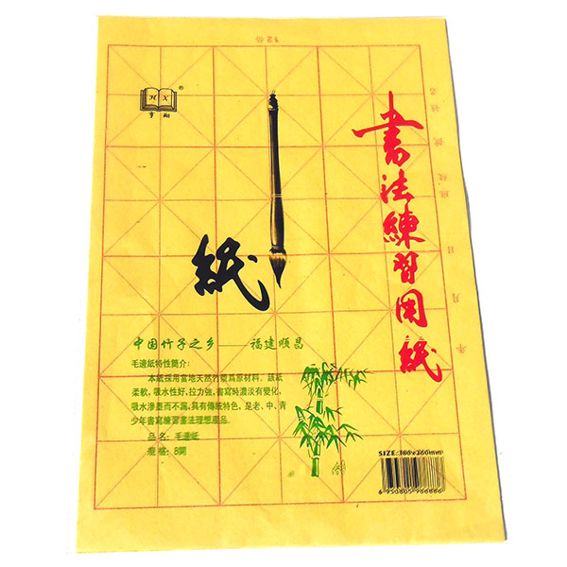 12格
HX
亨翔
®
書法練習用紙
紙
中国竹子之乡——福建順昌
毛邊紙特性簡介:
本紙採用當地天然竹漿爲原材料，該紙
柔軟，吸水性好，拉力強，書寫時濃淡有變化，
吸水滲墨而不漏，具有傳統特色，是老、中、青
少年書寫練習書法理想產品。
品名:毛邊紙
規格:8開
SIZE:380×260mm
6950805966886
年
月
日